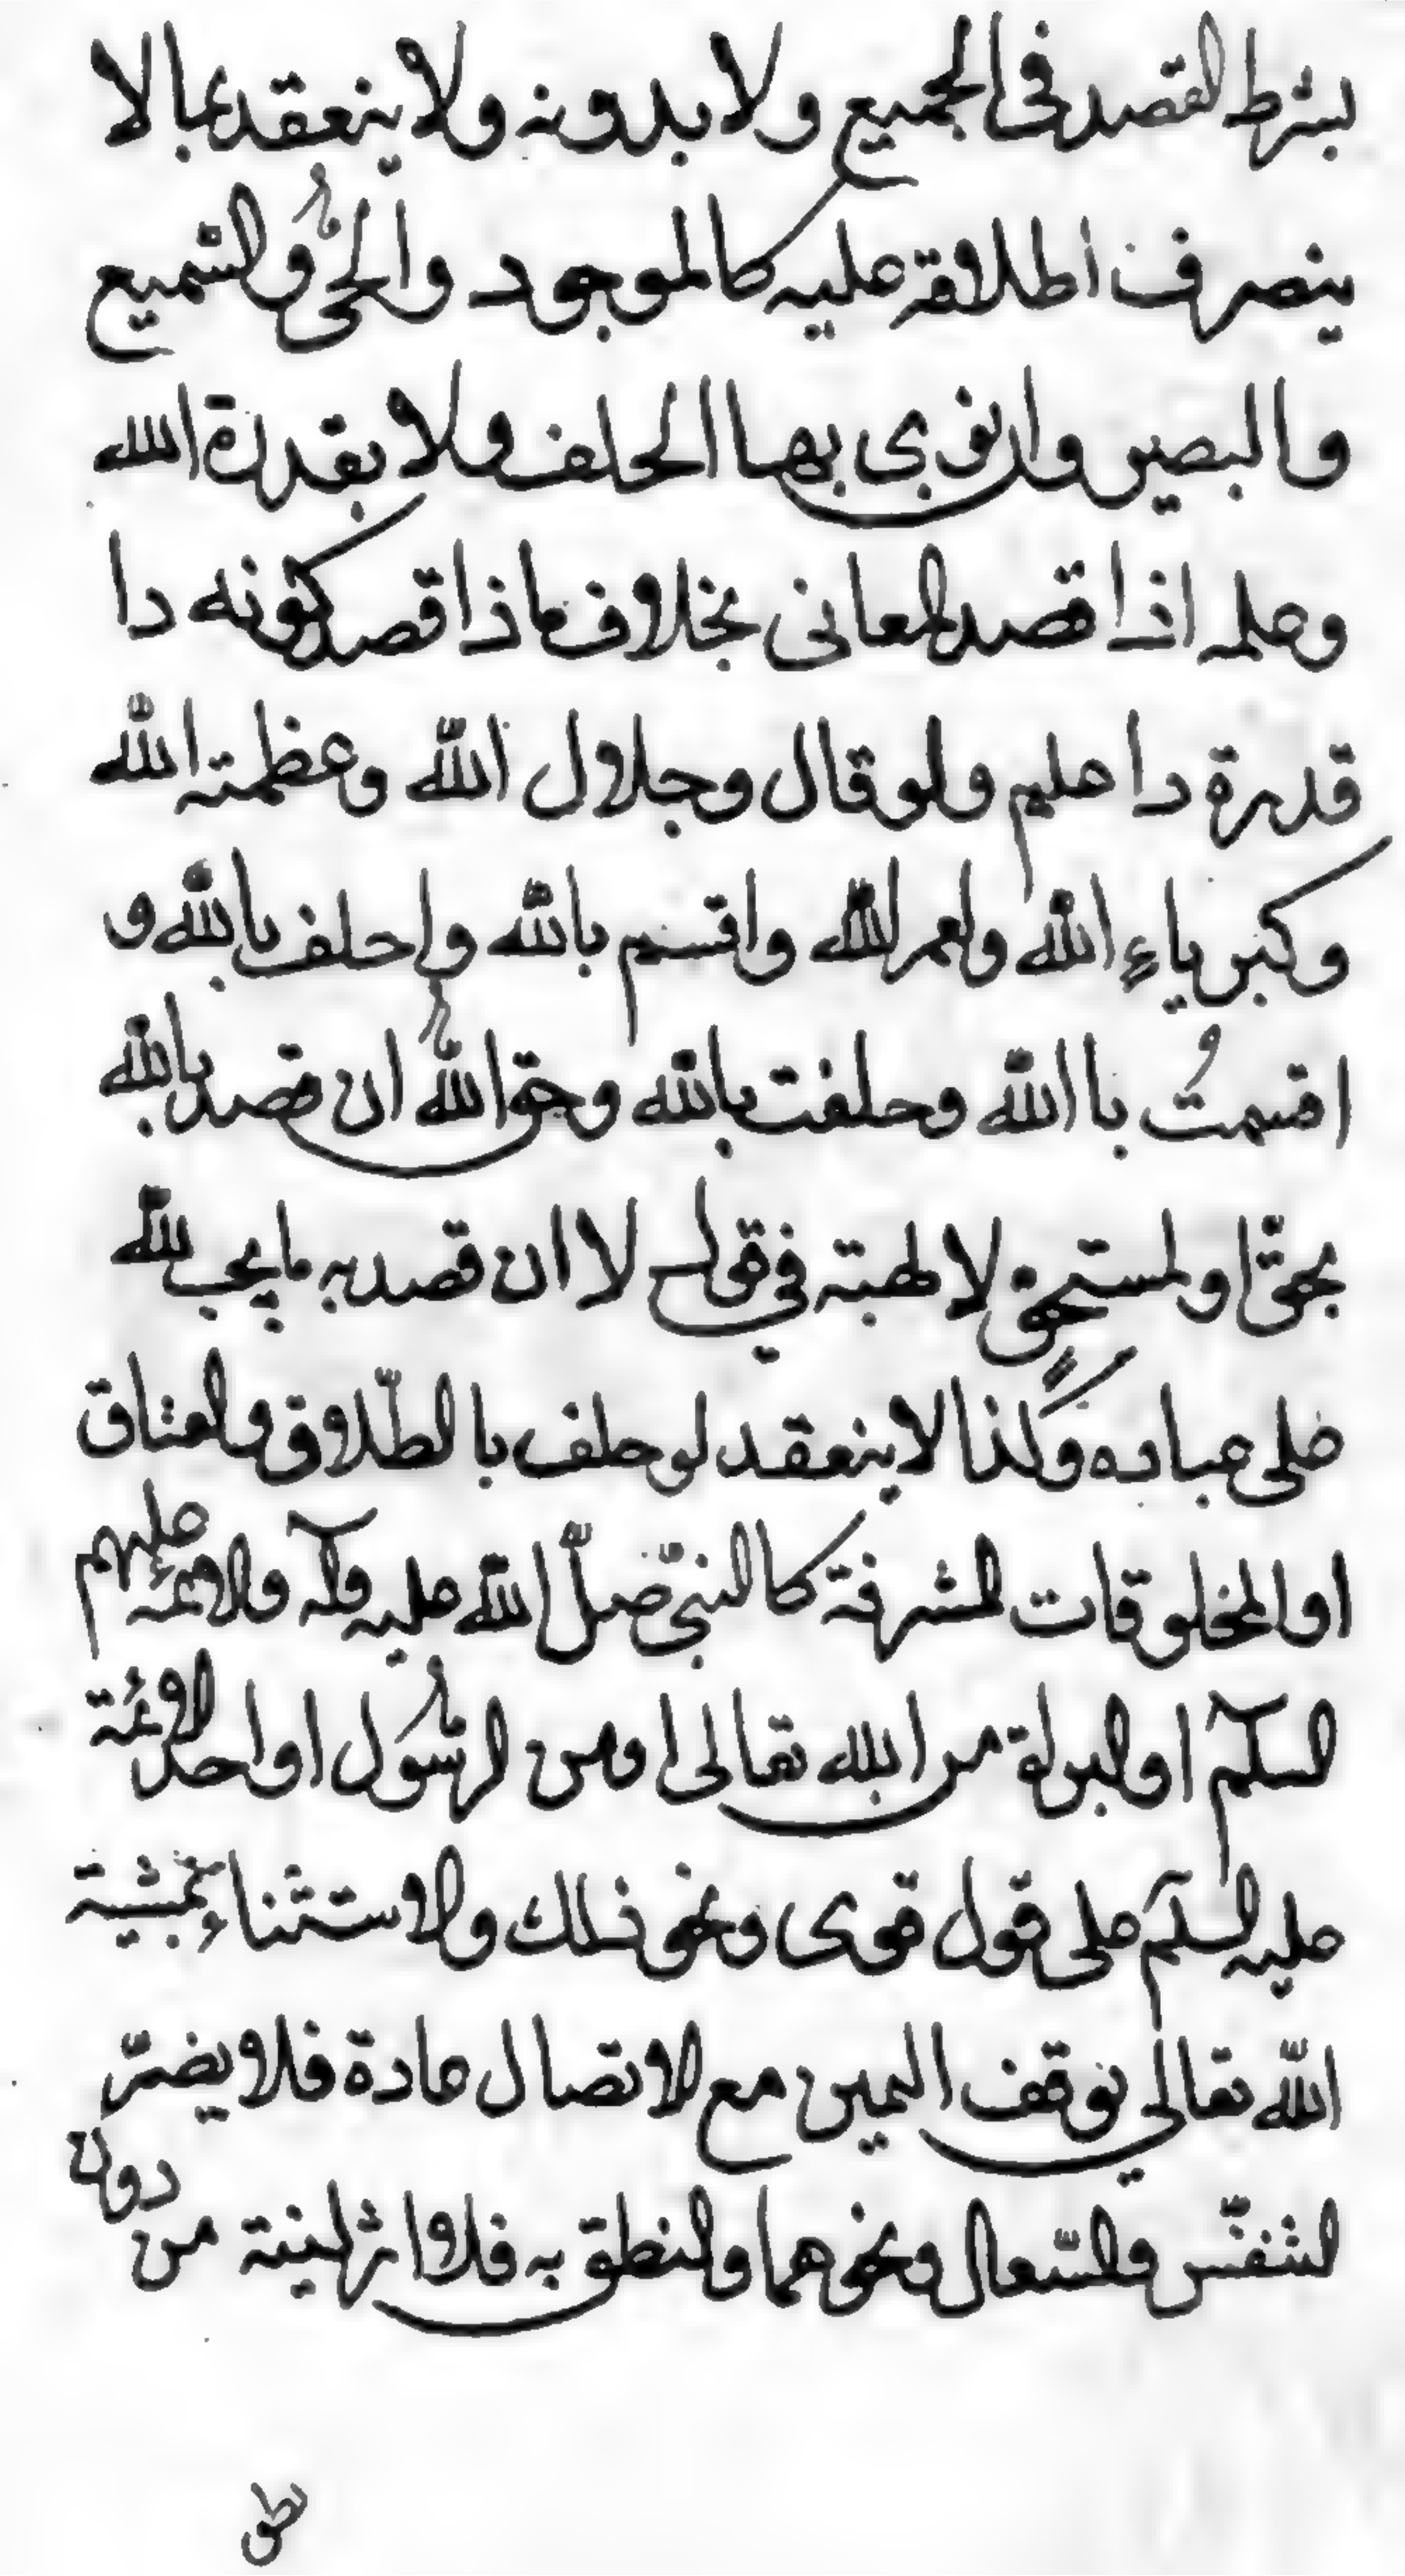 بشرط القصد فى الجميع ولا بدونه ولا ينعقد بما لا
ينصرف اطلاقه عليه كالموجود والحىّ والسميع
والبصير وان نوى بها الحلف ولا بقدرة الله
وعلمه اذا قصد المعانى بخلاف ما اذا قصد كونه ذا
قدرة ذا علم ولو قال وجلال الله وعظمة الله
وكبرياءِ الله ولعمر الله واقسم بالله واحلف بالله و
اقسمتُ باالله وحلفت بالله وحق الله ان قصد بالله
بحقّ او لمستحق لالهية في قول لا ان قصد به ما يجب لله
على عباده وكذا لا ينعقد لو حلف بالطّلاق والعتاق
او المخلوقات المشرفة كالنبىّ صلّى الله عليه وآله والائمة عليهم
السلام او البرائة من الله تعالى او من الرسُول او احد الائمة
عليه السلام على قول قوى ونحو ذلك والاستثناء بمشية
الله تعالي يوقف اليمين مع الاتصال عادة فلا يضرّ
التنفّس والسّعال ونحوهما والنطق به فلا اثر لنية من دون
نطق